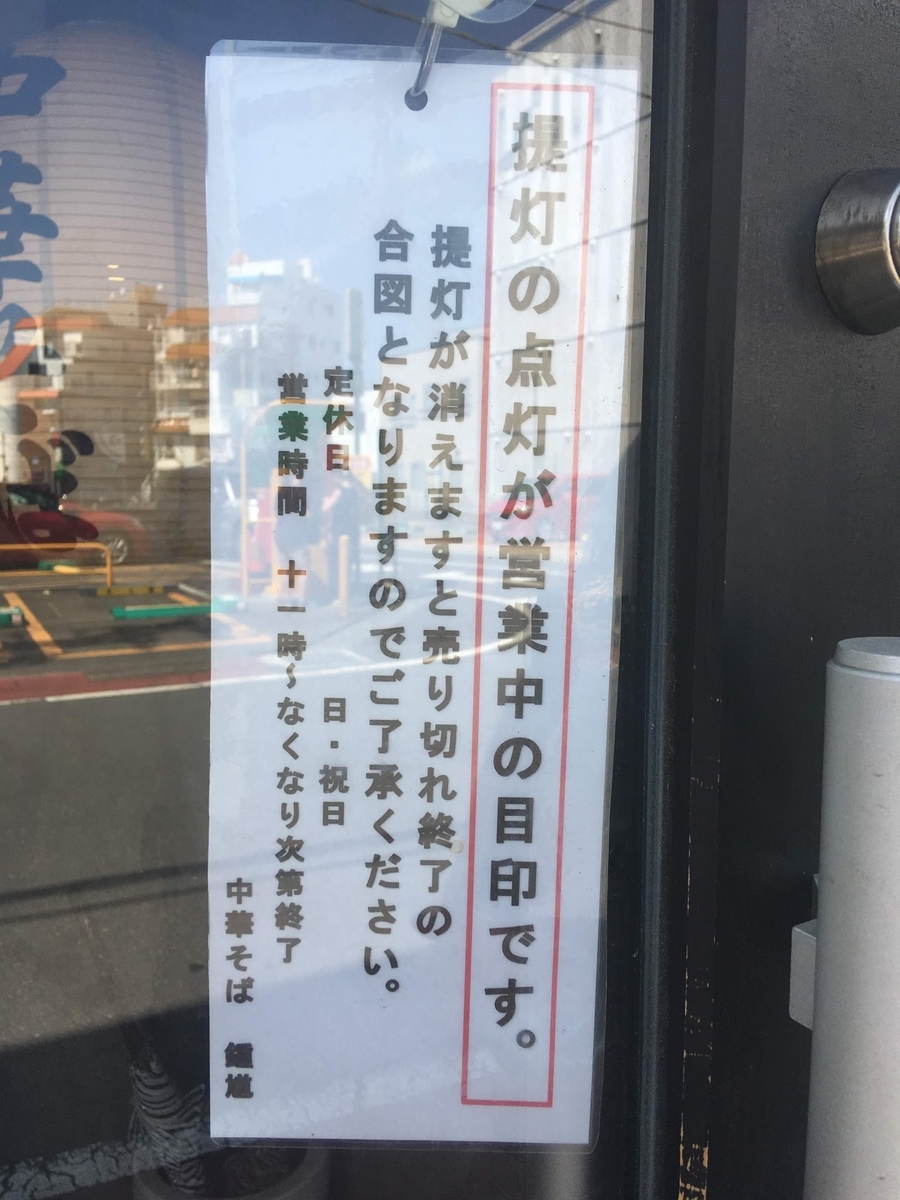 提灯の点灯が営業中の目印です。
提灯が消えますと売り切れ終了の
合図となりますのでご了承ください。
定休日　日・祝日
営業時間　十一時～なくなり次第終了
中華そば
中華そば